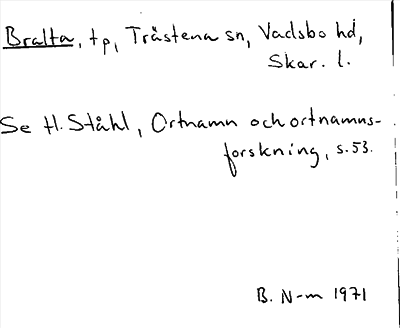 Bralta, tp, Trästena sn, Vadsbo hd,
Skar. l.
Se H. Ståhl, Ortnamn och ortnamns-
forskning, s. 53.
B. N-m 1971